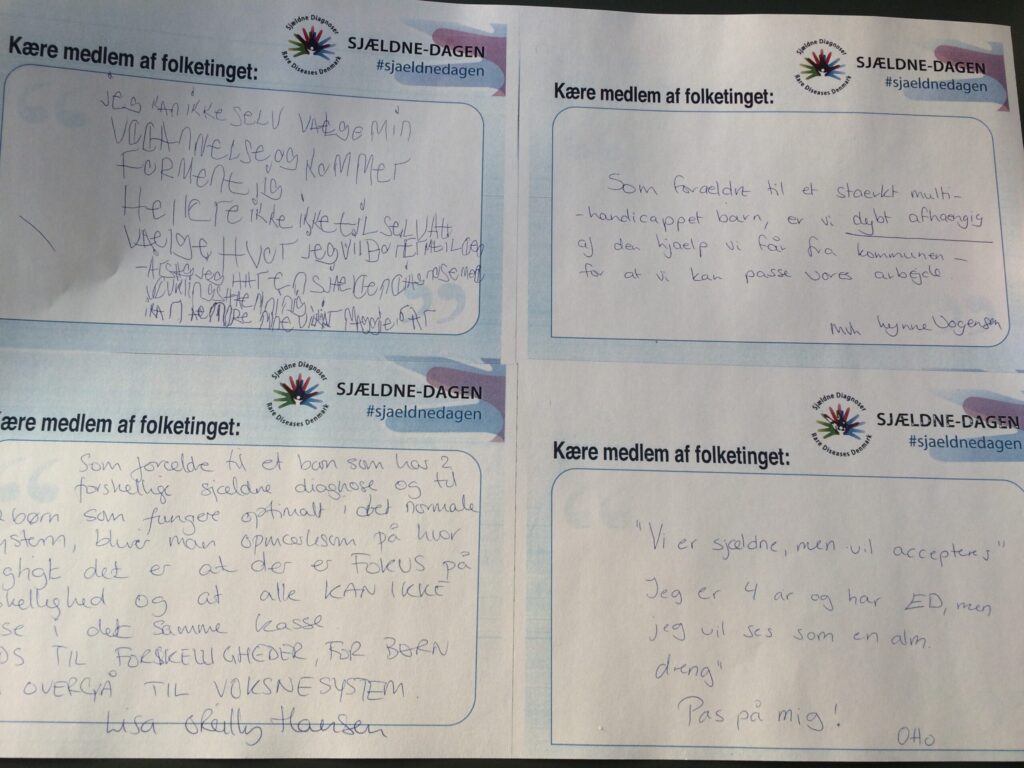 Kære medlem af folketinget:
Sjældne Diagnoser
Rare Diseases Denmark
SJÆLDNE-DAGEN
#sjaeldnedagen
jeg kan ikke SELV VÆLGE MIN
og KOMMER
FORMENTlig
HELLER ikke ikke til SELV At
VÆLGE HVOR jeg vil
Kære medlem af folketinget:
Sjældne Diagnoser
Rare Diseases Denmark
SJÆLDNE-DAGEN
#sjaeldnedagen
Som forældre til et stærkt multi-
-handicappet barn, er vi dybt afhængig
af den hjælp vi får fra kommunen -
for at vi kan passe vores arbejde
mvh Lynne
ære medlem af folketinget:
Sjældne Diagnoser
Rare Diseases Denmark
SJÆLDNE-DAGEN
#sjaeldnedagen
Som forælde til et barn som har 2
forskellige sjældne diagnose og til
børn som fungere optimalt i det normale
ystem, bliver man opmærksom på hvor
gtigt det er at der er FOKUS på
skellighed og at alle KAN IKKE
se i det samme kasse
TIL FORSKELLIGHEDER, FOR BØRN
OVERGÅ TIL VOKSNESYSTEM.
Lisa Reilly Hansen
Kære medlem af folketinget:
Sjældne Diagnoser
Rare Diseases Denmark
SJÆLDNE-DAGEN
#sjaeldnedagen
"Vi er sjældne, men vil accepteres"
Jeg er 4 år og har ED, men
jeg vil ses som en alm.
dreng"
Pas på mig!
Otto